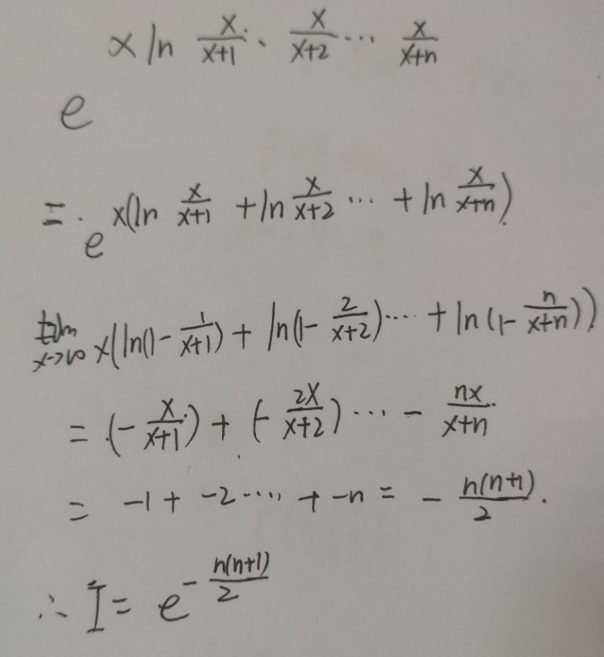 e^{x ln \frac{x}{x+1} · \frac{x}{x+2} ··· \frac{x}{x+n}}
= e^{x(ln \frac{x}{x+1} + ln \frac{x}{x+2} ··· + ln \frac{x}{x+n})}
\lim_{x→∞} x(ln(1 - \frac{1}{x+1}) + ln(1 - \frac{2}{x+2}) ··· + ln(1 - \frac{n}{x+n}))
= (-\frac{x}{x+1}) + (-\frac{2x}{x+2}) ··· - \frac{nx}{x+n}
= -1 + -2 ···· + -n = -\frac{n(n+1)}{2}.
∴ I = e^{-\frac{n(n+1)}{2}}